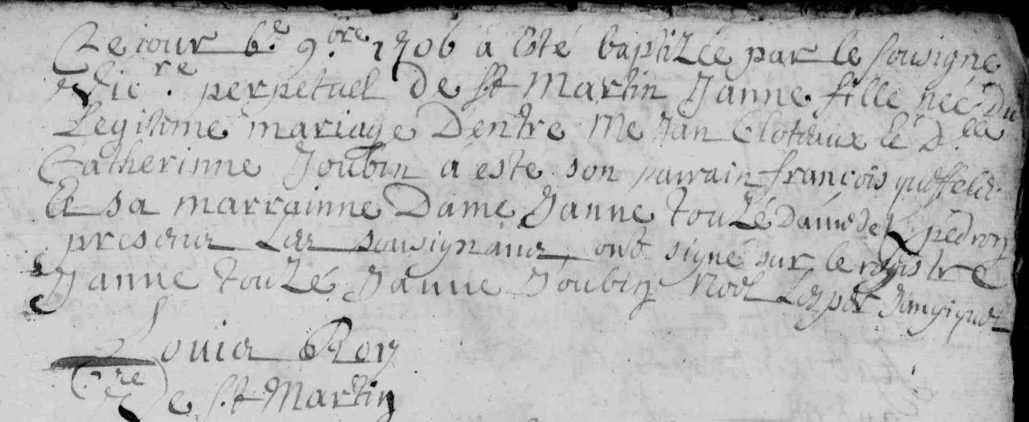 Ce jour 6.e 9.bre 1706 a esté baptizée par le sousigné
Vic.re perpetuel De St Martin Janne fille neé Du
Legitime mariage Dentre Me Jan Clotaux et D.lle
Catherinne Joubin a este son parrain françois
Et sa marrainne Dame Janne touzé Dame de
presans Les sousignans ont signé sur le registre
Janne touzé Janne Joubin Noël
Louis Roy
De St Martin